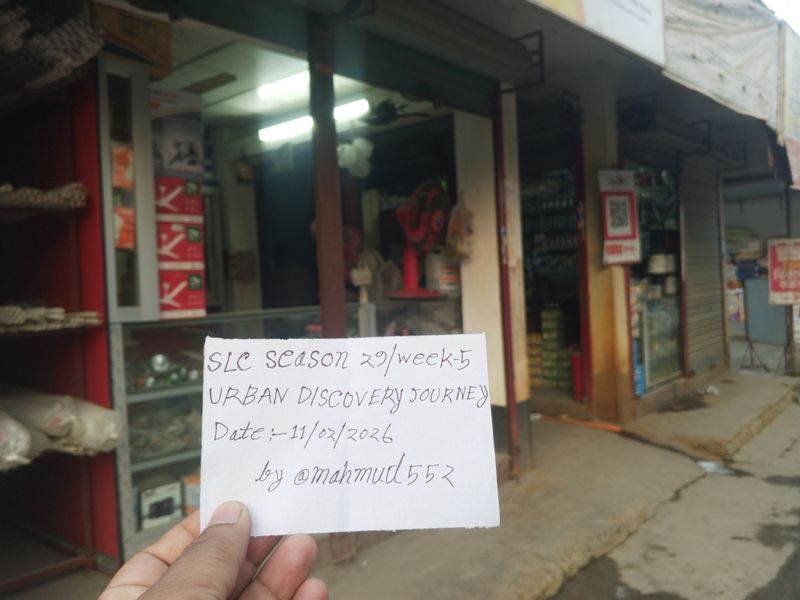 SLC SEASON 29/week-5
URBAN DISCOVERY JOURNEY
Date:-11/02/2026
by @mahmud552